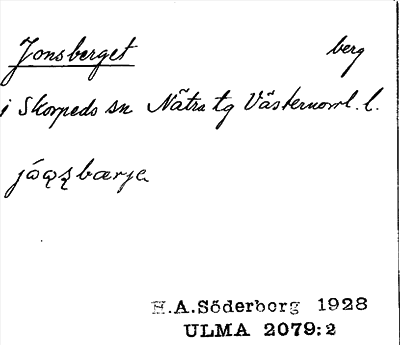 Jonsberget berg
i Skorpeds sn Nätra tg Västernorrl. l.
H.A.Söderberg 1928
ULMA 2079:2